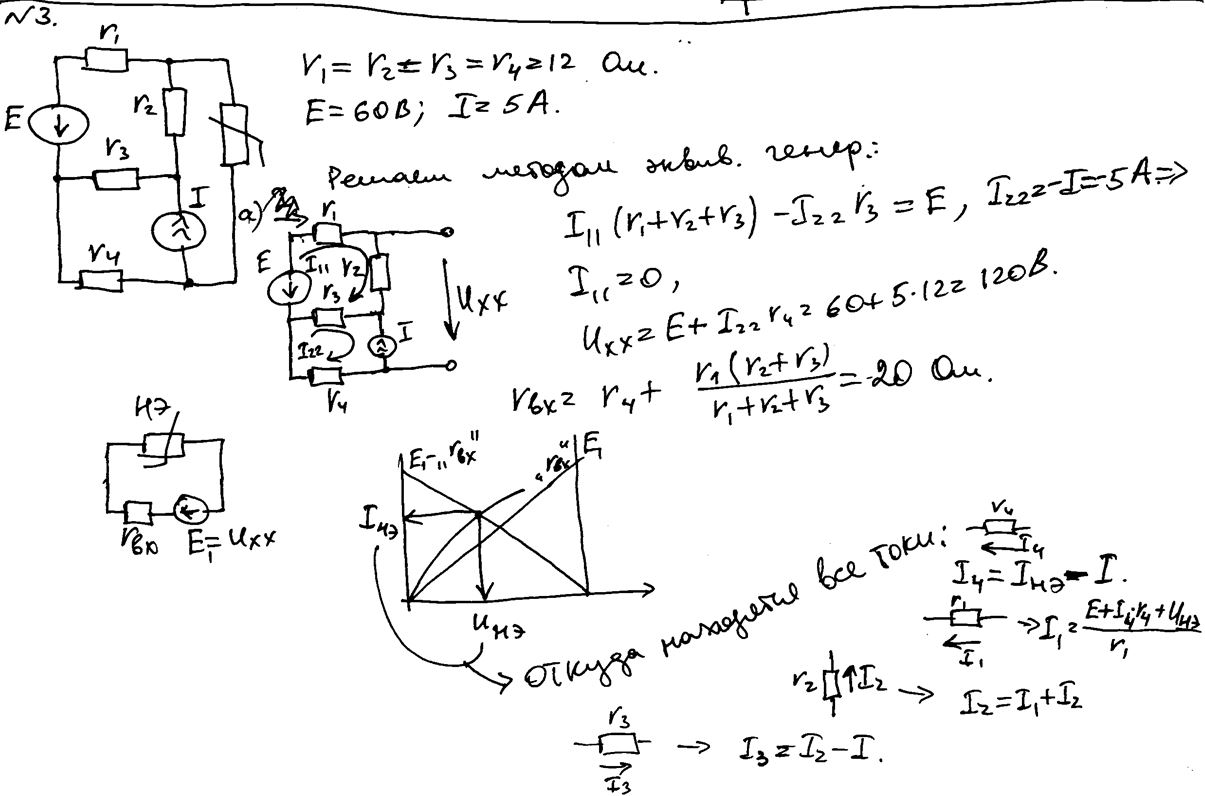 №3.
r₁
r₂
E
r₃
I
r₄
r₁ = r₂ = r₃ = r₄ = 12 Ом.
E = 60В; I = 5А.
Решаем методом эквив. генер.:
а)
r₁
E
I₁₁
r₂
r₃
I
I₂₂
r₄
Uхх
I₁₁(r₁+r₂+r₃) - I₂₂r₃ = E, I₂₂ = -I = -5A ⇒
I₁₁ = 0,
Uхх = E + I₂₂r₄ = 60 + 5·12 = 120В.
rвх = r₄ + r₁(r₂+r₃)/(r₁+r₂+r₃) = 20 Ом.
НЭ
rвх
E₁ = Uхх
E₁-„rвх"
„rвх"
E₁
Iнэ
Uнэ
откуда находятся все токи:
r₄
I₄
I₄ = Iнэ - I.
r₁
I₁
→ I₁ = (E+I₄·r₄+Uнэ)/r₁
r₂
↑I₂
→ I₂ = I₁+I₂
r₃
I₃
→ I₃ = I₂ - I.